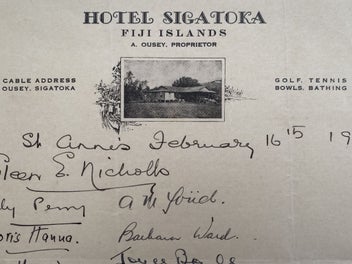 HOTEL SIGATOKA
FIJI ISLANDS
A. OUSEY, PROPRIETOR
CABLE ADDRESS
OUSEY, SIGATOKA
GOLF, TENNIS
BOWLS, BATHING
St Annes February 16 19
E. Nicholls
Perry A M
Hanna. Barbara Ward.
Joyce